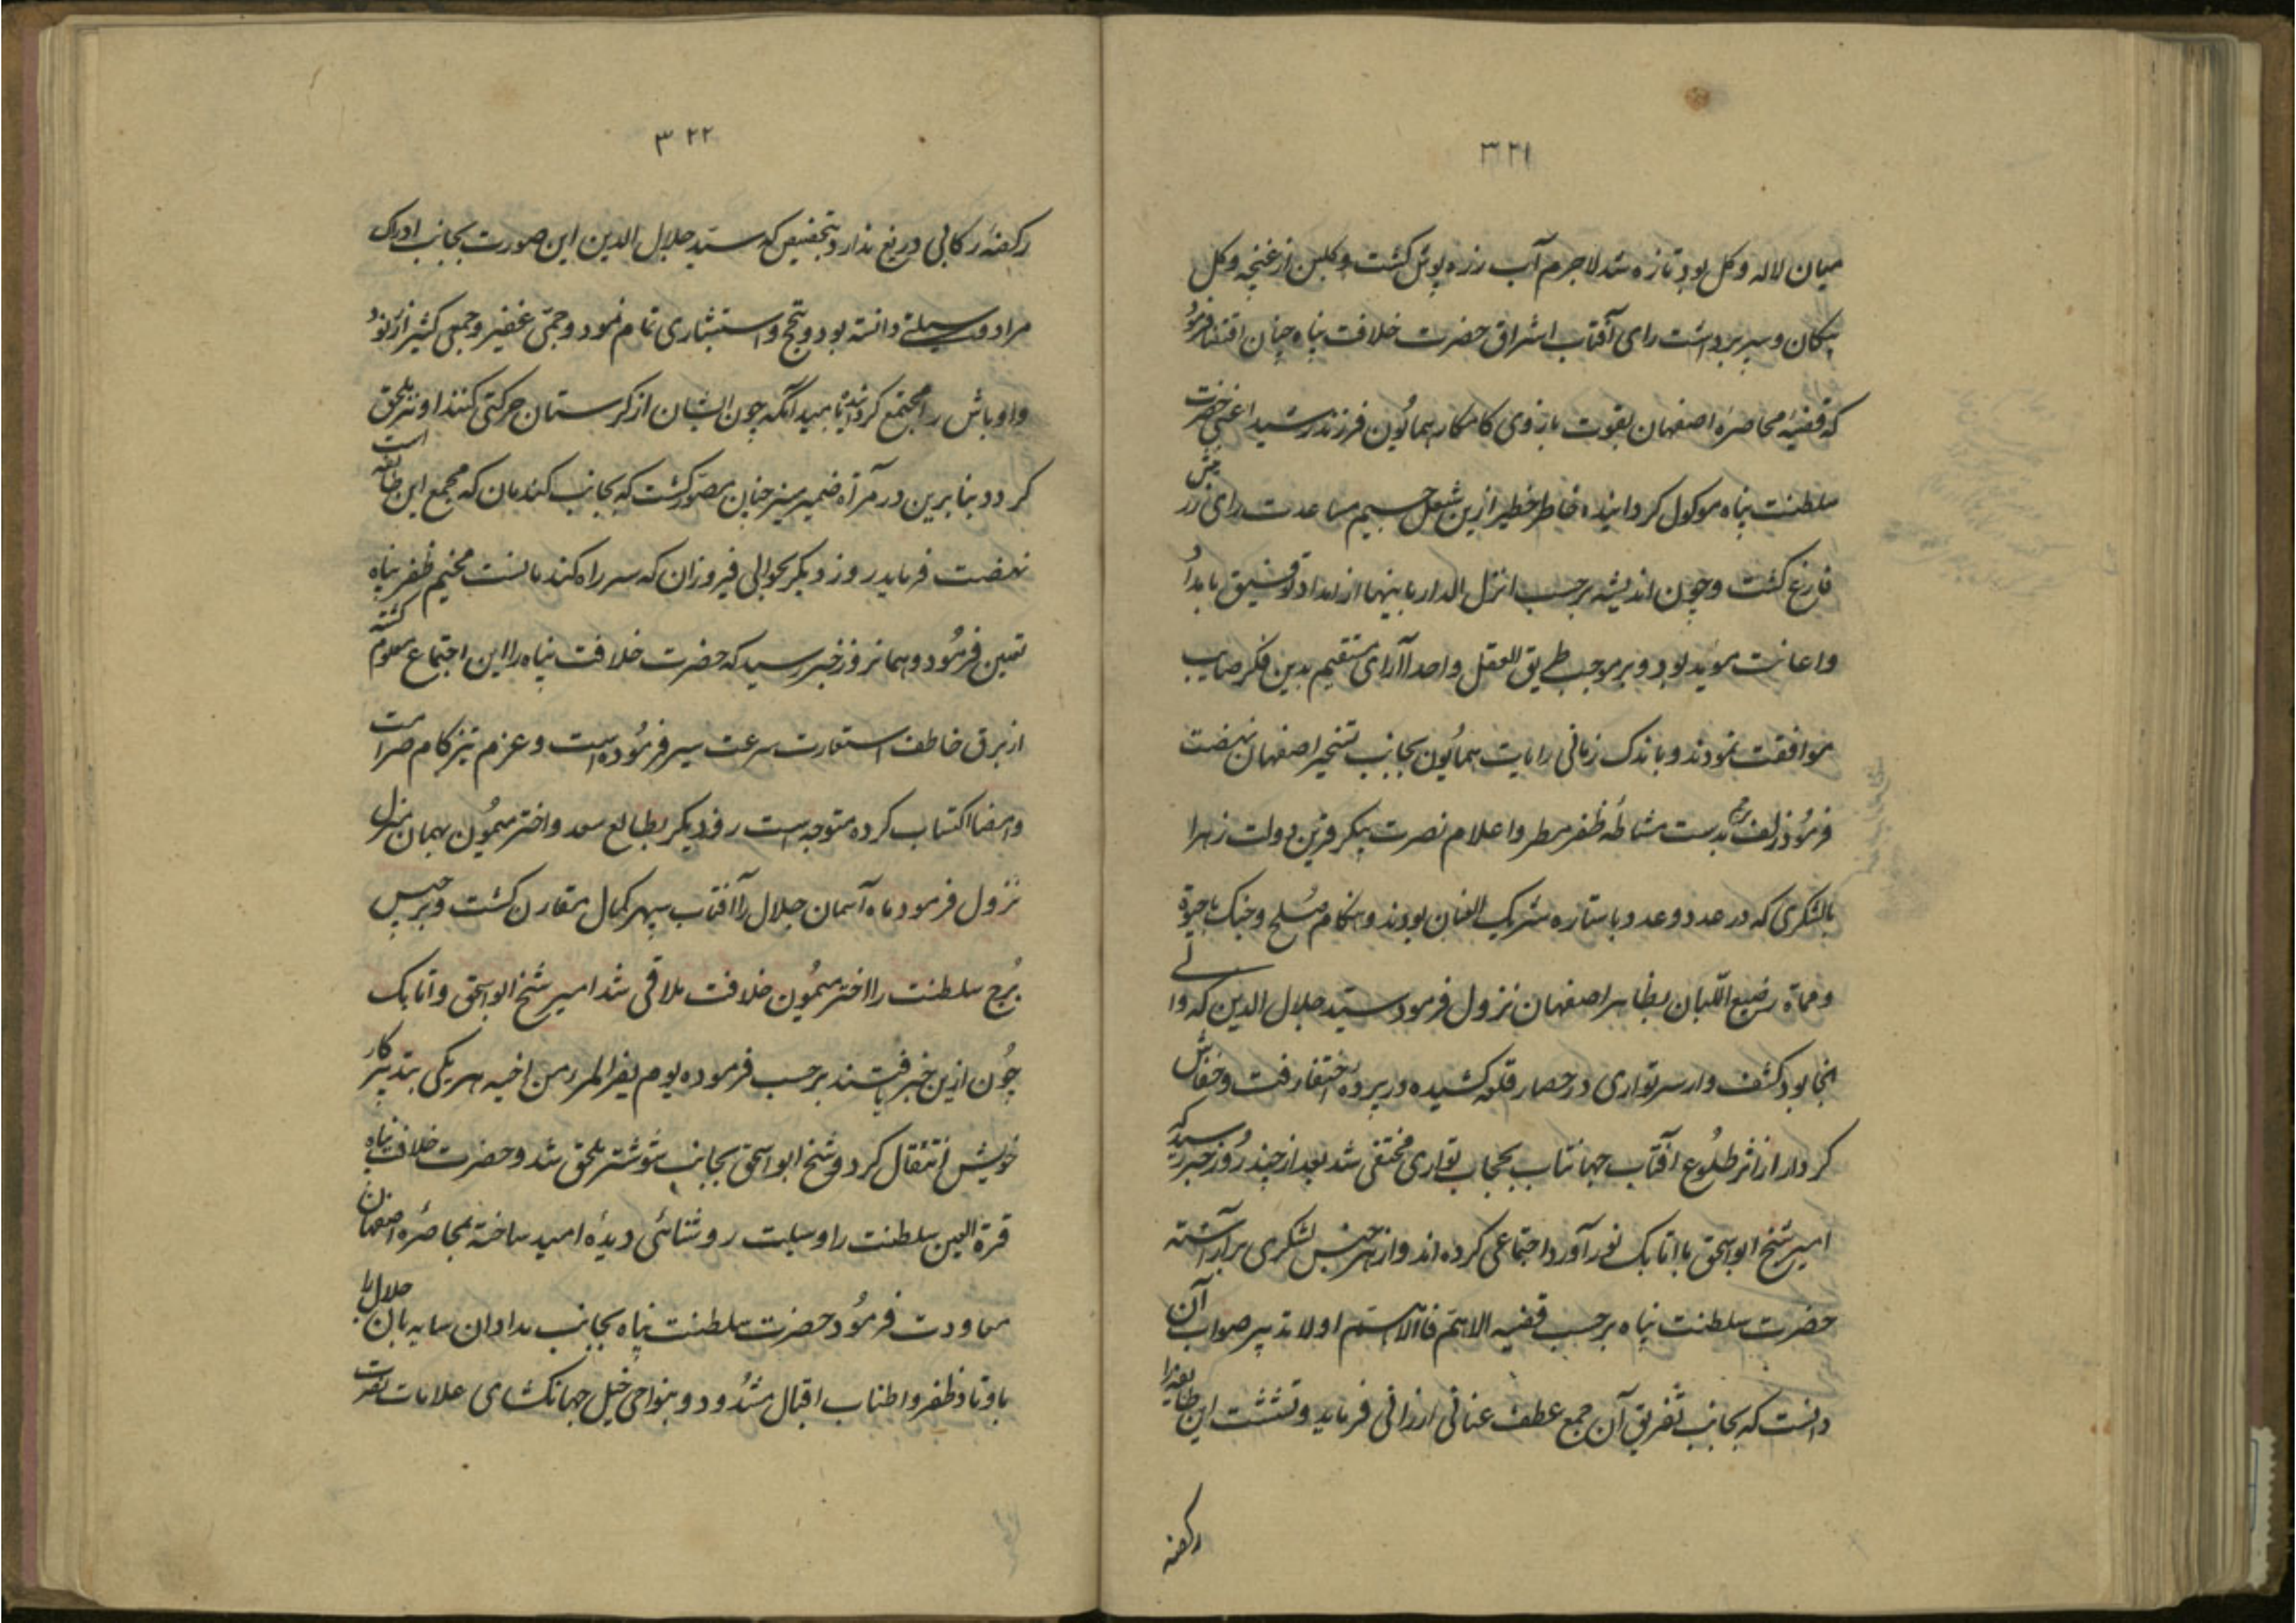 ۳۲۱
میان لاله و کل بود تازه شد لاجرم آب زره پوش کشت و کلبن از غنچه و کل
پیکان و سپر برداشت رای آفتاب اشراق حضرت خلافت پناه چنان اقتضا فرمود
که قضیه محاصره اصفهان بقوت بازوی کامکار همایون فرزند رشید اعنی حضرت
سلطنت پناه موکول کردانیده خاطر خطیر ازین شغل جسیم مساعدت رای
فارغ کشت و چون اندیشه برحسب انزل الدار بانیها از امداد توفیق بامداد
و اعانت موید بود و بر موجب طریق العقل واحد آرای مستقیم بدین فکر صایب
موافقت نمودند و باندک زمانی رایات همایون بجانب تسخیر اصفهان نهضت
فرمود زلف پرچم بدست مشاطه ظفر مطر و اعلام نصرت پیکر قرین دولت زهرا
بالشکری که در عدد و عدد با ستاره شریک العنان بودند و هنکام صلح و جنک با حیوة
و مماة رضیع اللبان بظاهر اصفهان نزول فرمود سید جلال الدین که والی
انجا بود کشف وار سر تواری در حصار قلعه کشیده در پرده اختفا رفت و خفاش
کردار از اثر طلوع آفتاب جهانتاب بحجاب تواری مختفی شد بعد از چند روز خبر رسید که
امیر شیخ ابو اسحق با اتابک نورآورد اجتماعی کرده اند و از هر جنس لشکری برآراسته
حضرت سلطنت پناه برحسب قضیه الاهم فالاهم اولا تدبیر صواب آن
دانست که بجانب تفریق آن جمع عطف عنانی ارزانی فرماید و تشتت این طایفه را
رکضه
۳۲۲
رکضه رکابی دریغ ندارد بتخصیص که سید جلال الدین این صورت بجانب ادراک
مراد وسیلتی دانسته بود و تبجح و استبشاری تمام نمود و جمی غفیر و جمعی کثیر از رنود
و اوباش را مجتمع کردانید تا بمید آنکه چون ایشان از کرستان حرکتی کنند او نیز ملحق
کردد بنابرین در مرآة ضمیر منیر چنان مصور کشت که بجانب کندمان که مجمع این طایفه است
نهضت فرماید روز دیکر بحوالی فیروزان که سر راه کندمانست مخیم ظفر پناه
تعیین فرمود و همانروز خبر رسید که حضرت خلافت پناه را این اجتماع معلوم کشته
از برق خاطف استعارت سرعت سیر فرموده است و عزم تیزکام صرامت
و امضا اکتساب کرده متوجه است روز دیکر بطالع سعد و اختر میمون بهمان منزل
نزول فرمود ماه آسمان جلال را آفتاب سپهر کمال مقارن کشت و برجیس
برج سلطنت را اختر میمون خلافت ملاقی شد امیر شیخ ابو اسحق و اتابک
چون ازین خبر یافتند برحسب فرموده یوم یفر المرء من اخیه هر یکی بتدبیر کار
خویش انتقال کرد و شیخ ابو اسحق بجانب شوشتر ملحق شد و حضرت خلافت پناه
قرة العین سلطنت را وسیلت روشنائی دیده امید ساخته بمحاصره اصفهان
معاودت فرمود حضرت سلطنت پناه بجانب سایه بان جلال را
باوتاد ظفر و اطناب اقبال مشدود و بنواحی خیل جهانکشای علامات نصرت